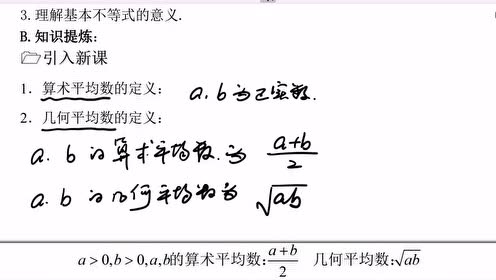 3. 理解基本不等式的意义.
B. 知识提炼:
引入新课
1. 算术平均数的定义: a. b为正实数.
2. 几何平均数的定义:
a. b的算术平均数.为 \frac{a+b}{2}
a. b的几何平均数为 \sqrt{ab}
a>0,b>0,a,b的算术平均数:\frac{a+b}{2} 几何平均数:\sqrt{ab}